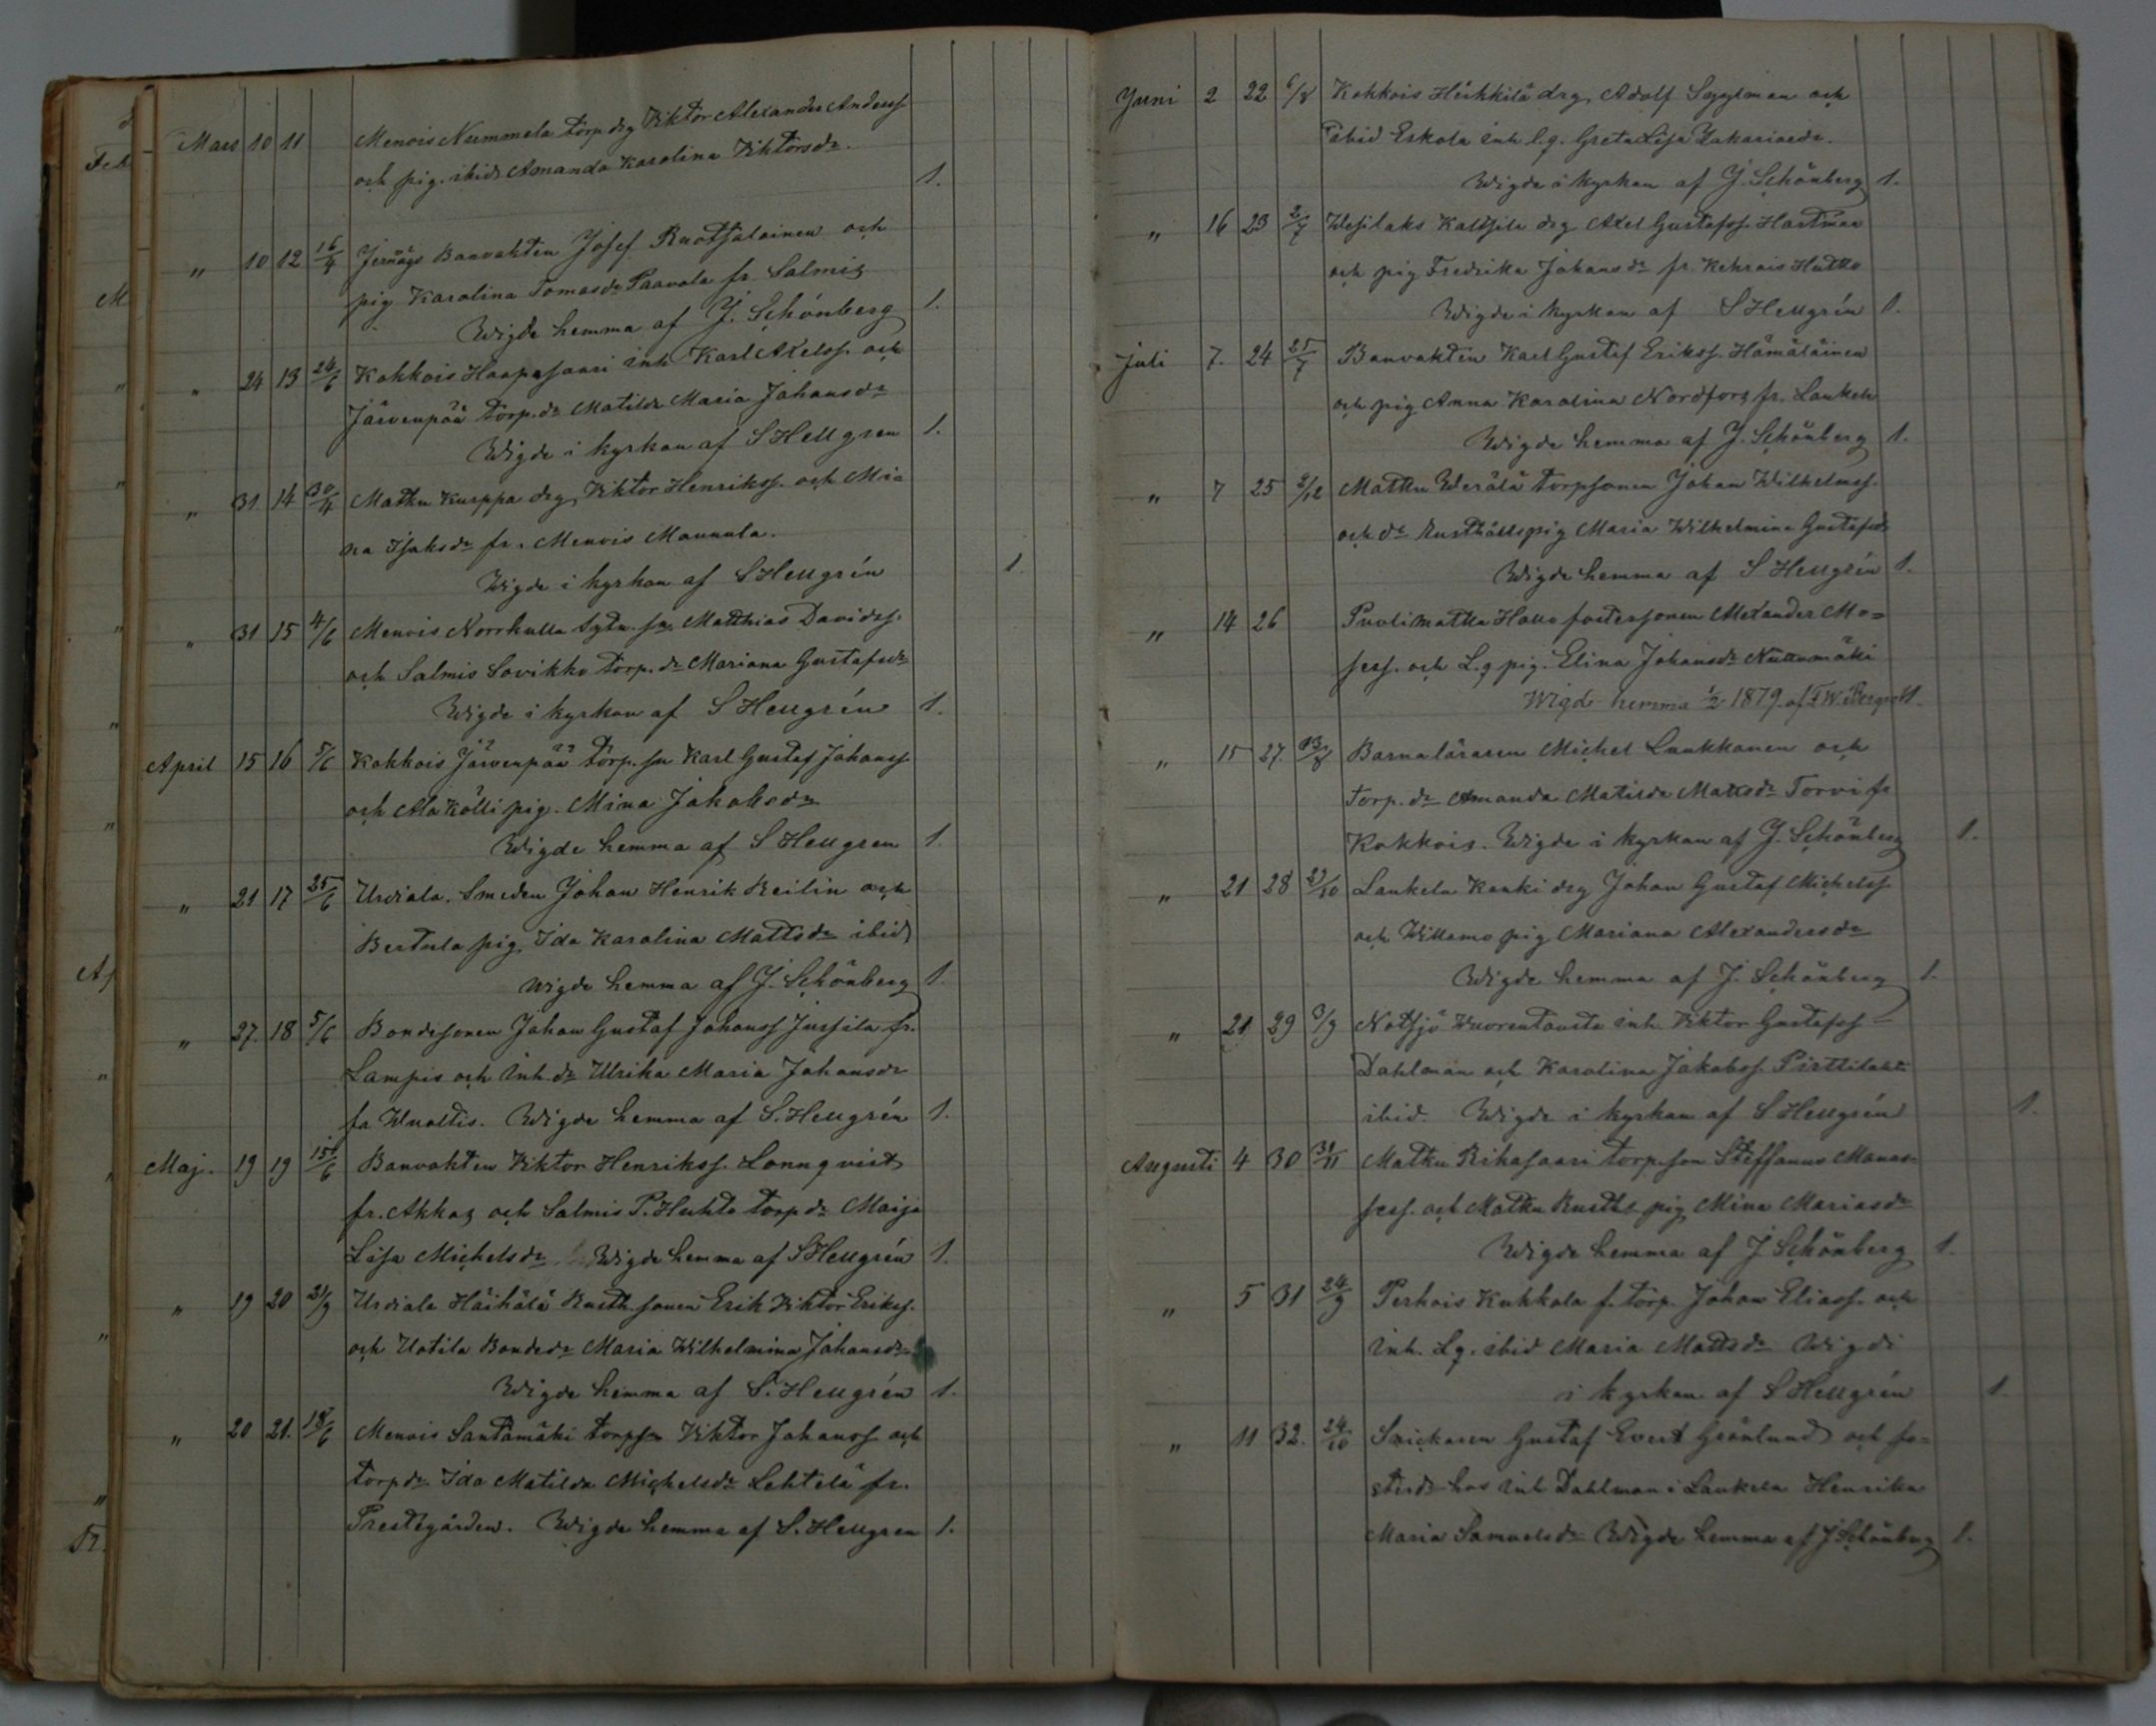 Mars 10 11 Menois Nummela torp. drg Viktor Alexander Anderss.
och pig. ibid. Amanda Karolina Viktorsdr. 1.
" 10 12 16/4 Jernvägs Banvakten Josef Ruotsalainen och
pig Karolina Tomasdr Paavola fr. Salmis
Wigde hemma af J. Schönberg 1.
" 24 13 24/6 Kokkois Haapasaari inh Karl Axelss. och
Järvenpää torp. dr Matilda Maria Johansdr
Wigde i kyrkan af S Hellgren 1.
" 31 14 30/11 Matku Kurppa drg Viktor Henrikss. och Mia
na Isaksdr fr. Menois Mannula.
Wigde i kyrkan af S Hellgrén 1.
" 31 15 4/6 Menois Norrkulla Sytn. sn Matthias Davidss.
och Salmis Sovikko torp. dr Mariana Gustafsdr
Wigde i kyrkan af S Hellgrén 1.
April 15 16 5/6 Kokkois Järvenpää torp. sn Karl Gustaf Johanss.
och Ala Kölli pig. Mina Jakobsdr
Wigde hemma af S Hellgren 1.
" 21 17 25/6 Urdiala. Smeden Johan Henrik Reilin och
Bertula pig Ida Karolina Mattsdr ibid
Wigde hemma af J. Schönberg 1.
" 27. 18 5/6 Bondesonen Johan Gustaf Johanss Jussila fr.
Lampis och Inh. dr Ulrika Maria Johansdr
fr Wualtis. Wigde hemma af S. Hellgrén 1.
Maj. 19 19 15/6 Banvakten Viktor Henrikss. Lönnqvist
fr. Akkas och Salmis P. Huhta torp dr Maija
Lisa Michelsdr Wigde hemma af S Hellgrén 1.
" 19 20 21/9 Urdiala Häihälä Rusth. sonen Erik Viktor Erikss.
och Uotila Bondedr Maria Wilhelmina Johansdr
Wigde hemma af S. Hellgrén 1.
" 20 21. 18/6 Menois Santamäki torpsn Viktor Johanss. och
torp dr Ida Matilda Michelsdr Lehtelä fr.
Prestegården. Wigde hemma af S. Hellgren 1.
Juni 2 22 6/8 Kokkois Heikkilä drg. Adolf och
ibid Eskola inh l.g. Greta Lisa Zakariaedr.
Wigde i kyrkan af J. Schönberg 1.
" 16 23 2/7 Wesilaks Kaltsila drg Axel Gustafss. Hartman
och pig Fredrika Johansdr fr. Kehrois Hutko
Wigde i kyrkan af S Hellgrén 1.
Juli 7. 24 25/7 Banvakten Karl Gustaf Erikss. Hämäläinen
och pig Anna Karolina Nordfors fr. Laukela
Wigde hemma af J. Schönberg 1.
" 7 25 2/12 Matku Werälä torpsonen Johan Wilhelmss.
och dr Rusthållspig Maria Wilhelmina Gustafsdr
Wigde hemma af S Hellgrén 1.
" 14 26 Puolimatka Hollo fostersonen Alexander Mo=
sess. och L.g pig. Elina Johansdr Nuttumäki
Wigde hemma 1/2 1879. af F W Berg 1.
" 15 27. 13/8 Barnaläraren Michel Laukkanen och
Torp. dr Amanda Matilda Mattsdr Torvi fr
Kokkois. Wigde i kyrkan af J. Schönberg 1.
" 21 28 27/10 Laukela Kanki drg Johan Gustaf Michelss.
och Willamo pig Mariana Alexandersdr
Wigde hemma af J. Schönberg 1.
" 21 29 3/9 Notsjö Wuorentausta inh. Viktor Gustafss
Dahlman och Karolina Jakobss. Pirttilaht
ibid. Wigde i kyrkan af S Hellgrén 1.
Augusti 4 30 30/11 Matku Rikasaari torp. son Steffanus Manas
sess. och Matku Rusth pig Mina Mariasdr
Wigde hemma af J Schönberg 1.
" 5 31 24/9 Perhois Kukkola f. torp. Johan Eliass. och
Inh. L.g. ibid Maria Mattsdr Wigde
i kyrkan af S Hellgrén 1.
" 11 32. 24/10 Snickaren Gustaf Evert Grönlund och fo=
sterdr hos inh Dahlman i Laukela Henrika
Maria Samuelsdr Wigde hemma af J Schönberg 1.